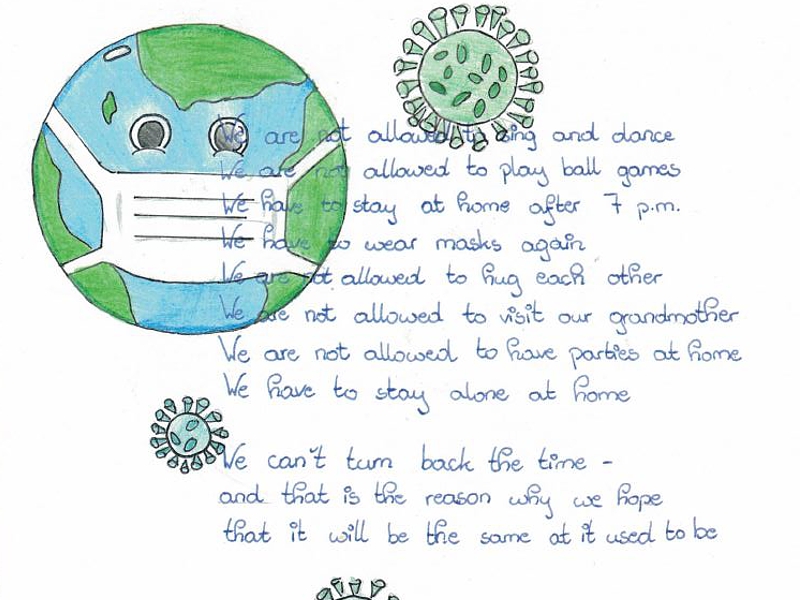 We are not allowed to sing and dance
We are not allowed to play ball games
We have to stay at home after 7 p.m.
We have to wear masks again
We are not allowed to hug each other
We are not allowed to visit our grandmother
We are not allowed to have parties at home
We have to stay alone at home
We can't turn back the time -
and that is the reason why we hope
that it will be the same at it used to be